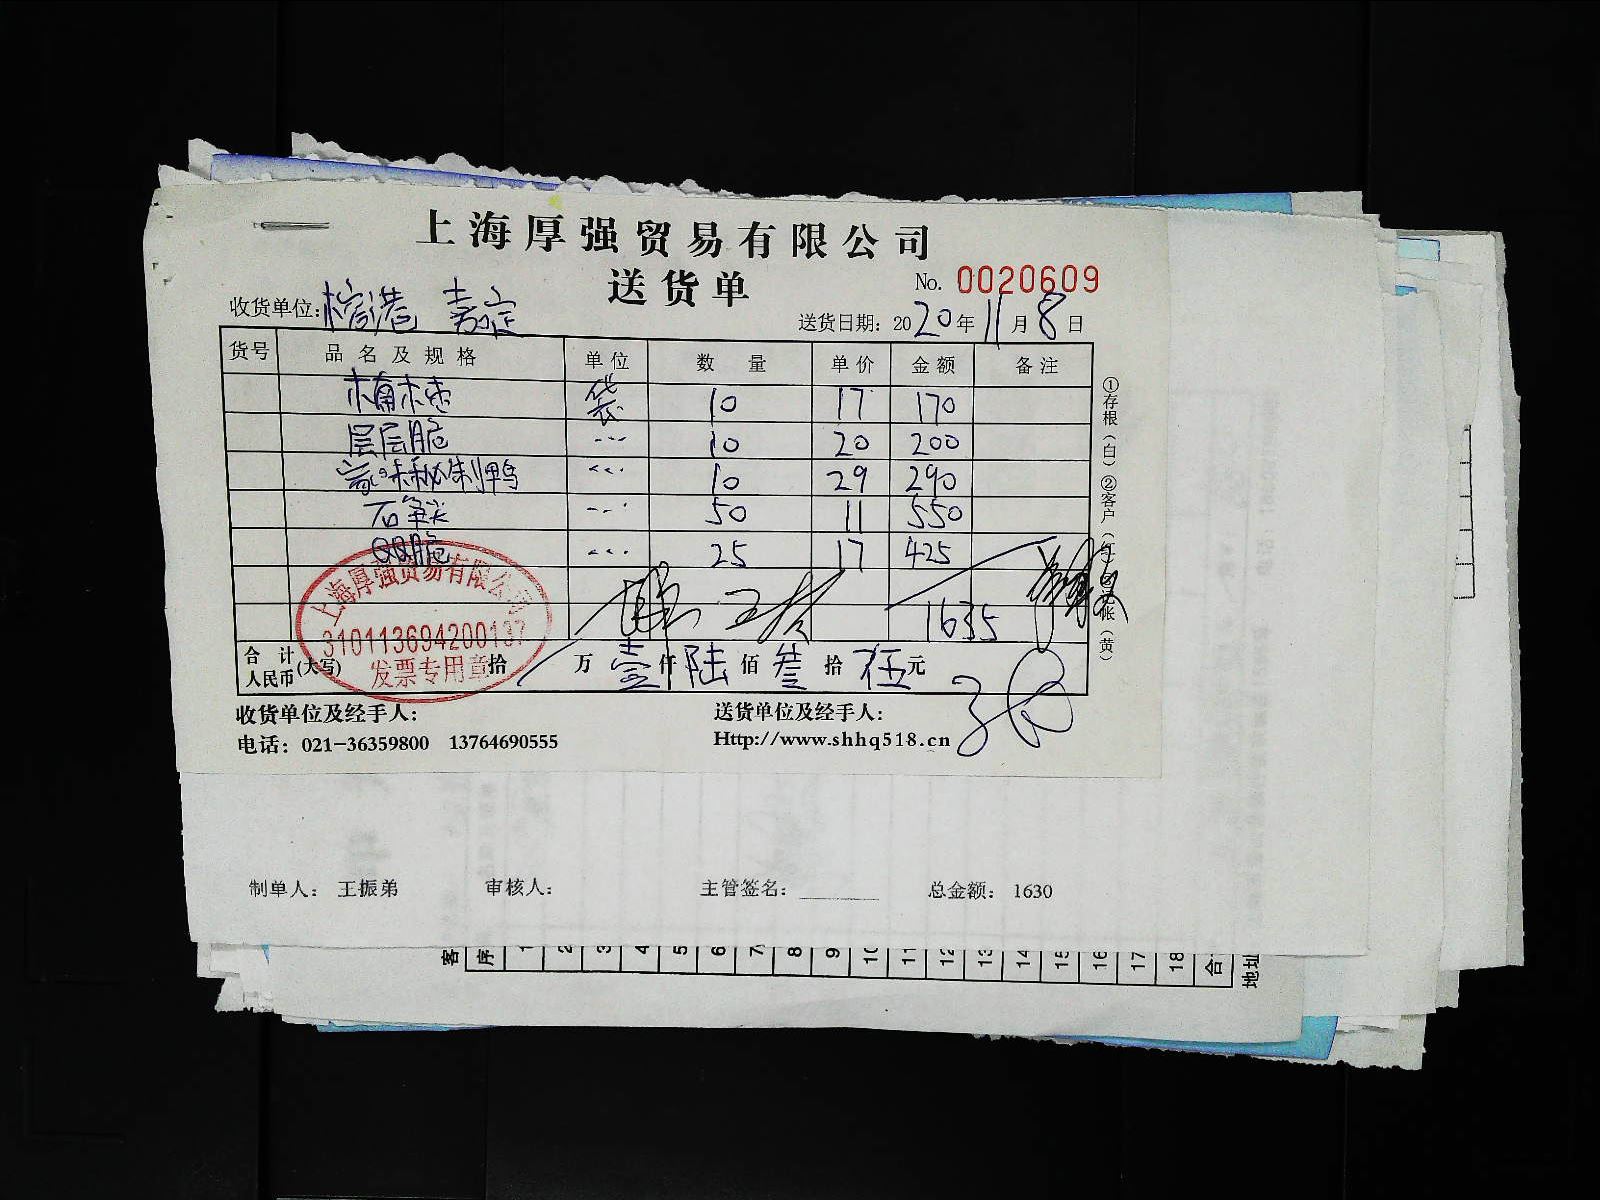 上海厚强贸易有限公司
送货单
No. 0020609
收货单位：榕港 嘉定
送货日期：2020年11月8日
货号 品名及规格 单位 数量 单价 金额 备注
袋 10 17 170
层层脆 〃 10 20 200
秘制鸭 〃 10 29 290
〃 50 11 550
QQ脆 〃 25 17 425
1635
上海厚强贸易有限公司
310113694200137
发票专用章
合计人民币(大写) 拾 万 壹仟 陆佰 叁拾 伍元
①存根（白）②客户（红）③记账（黄）
收货单位及经手人：
送货单位及经手人：
电话：021-36359800 13764690555
Http://www.shhq518.cn
制单人：王振弟 审核人： 主管签名： 总金额：1630
客
序 1 2 3 4 5 6 7 8 9 10 11 12 13 14 15 16 17 18 合
地址